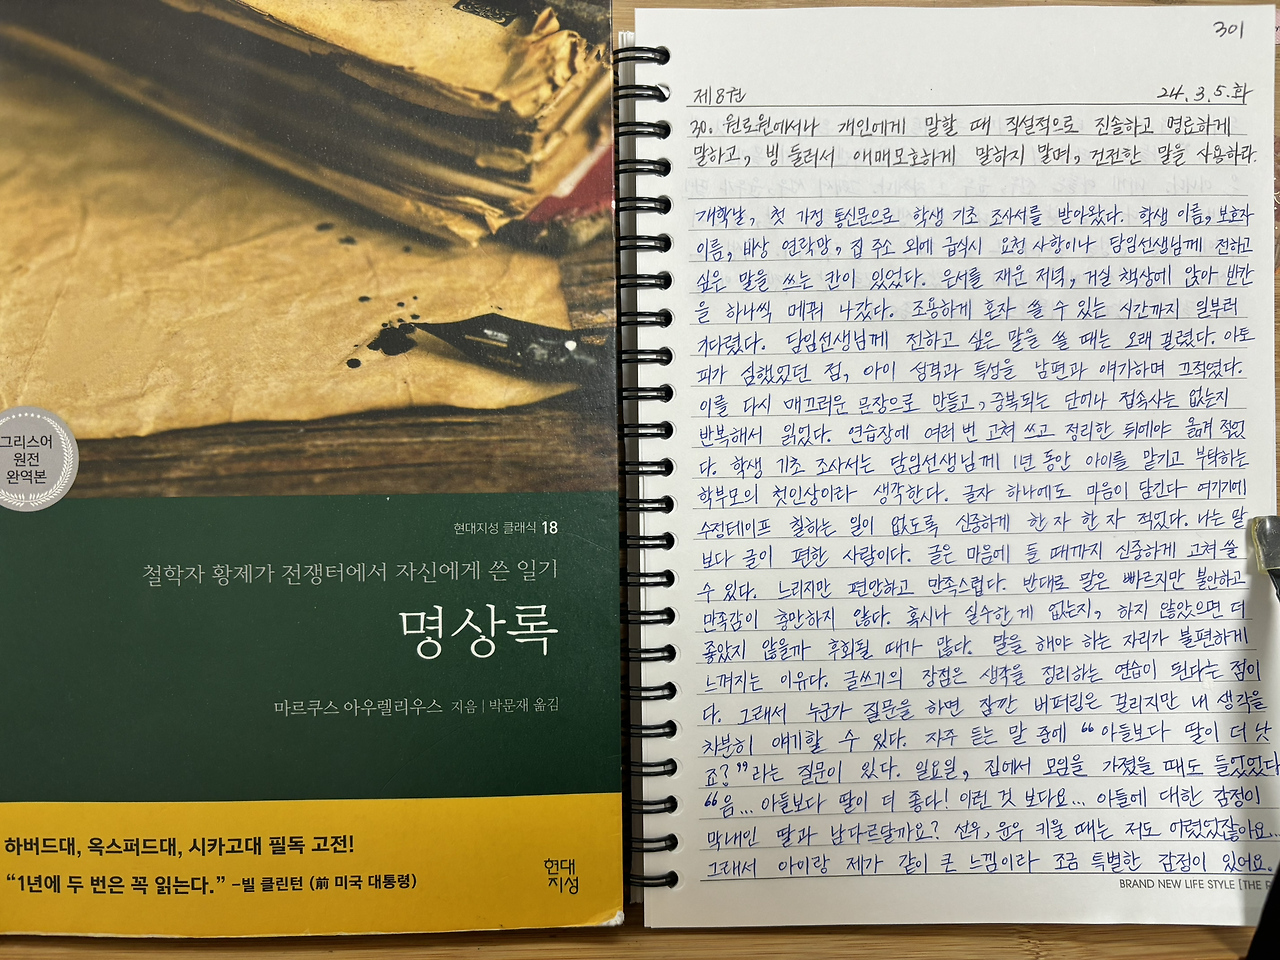 그리스어
원전
완역본
현대지성 클래식 18
철학자 황제가 전쟁터에서 자신에게 쓴 일기
명상록
마르쿠스 아우렐리우스 지음 | 박문재 옮김
하버드대, 옥스퍼드대, 시카고대 필독 고전!
“1년에 두 번은 꼭 읽는다.” –빌 클린턴 (前 미국 대통령)
현대
지성
301
제8권 24.3.5.화
30. 원로원에서나 개인에게 말할 때 직설적으로 진솔하고 명료하게
말하고, 빙 둘러서 애매모호하게 말하지 말며, 건전한 말을 사용하라.
개학날, 첫 가정 통신문으로 학생 기초 조사서를 받아왔다. 학생 이름, 보호자
이름, 비상 연락망, 집 주소 외에 급식시 요청 사항이나 담임선생님께 전하고
싶은 말을 쓰는 칸이 있었다. 은서를 재운 저녁, 거실 책상에 앉아 빈칸
을 하나씩 메꿔 나갔다. 조용하게 혼자 쓸 수 있는 시간까지 일부러
기다렸다. 담임선생님께 전하고 싶은 말을 쓸 때는 오래 걸렸다. 아토
피가 심했었던 점, 아이 성격과 특성을 남편과 얘기하며 끄적였다.
이를 다시 매끄러운 문장으로 만들고, 중복되는 단어나 접속사는 없는지
반복해서 읽었다. 연습장에 여러 번 고쳐 쓰고 정리한 뒤에야 옮겨 적었
다. 학생 기초 조사서는 담임선생님께 1년 동안 아이를 맡기고 부탁하는
학부모의 첫인상이라 생각한다. 글자 하나에도 마음이 담긴다 여기기에
수정테이프 칠하는 일이 없도록 신중하게 한 자 한 자 적었다. 나는 말
보다 글이 편한 사람이다. 글은 마음에 들 때까지 신중하게 고쳐 쓸
수 있다. 느리지만 편안하고 만족스럽다. 반대로 말은 빠르지만 불안하고
만족감이 충만하지 않다. 혹시나 실수한 게 없는지, 하지 않았으면 더
좋았지 않을까 후회될 때가 많다. 말을 해야 하는 자리가 불편하게
느껴지는 이유다. 글쓰기의 장점은 생각을 정리하는 연습이 된다는 점이
다. 그래서 누군가 질문을 하면 잠깐 버퍼링은 걸리지만 내 생각을
차분히 얘기할 수 있다. 자주 듣는 말 중에 “아들보다 딸이 더 낫
죠?”라는 질문이 있다. 일요일, 집에서 모임을 가졌을 때도 들었었다
“음... 아들보다 딸이 더 좋다! 이런 것 보다요... 아들에 대한 감정이
막내인 딸과 남다르달까요? 선우, 윤우 키울 때는 저도 어렸었잖아요...
그래서 아이랑 제가 같이 큰 느낌이라 조금 특별한 감정이 있어요.
BRAND NEW LIFE STYLE [THE